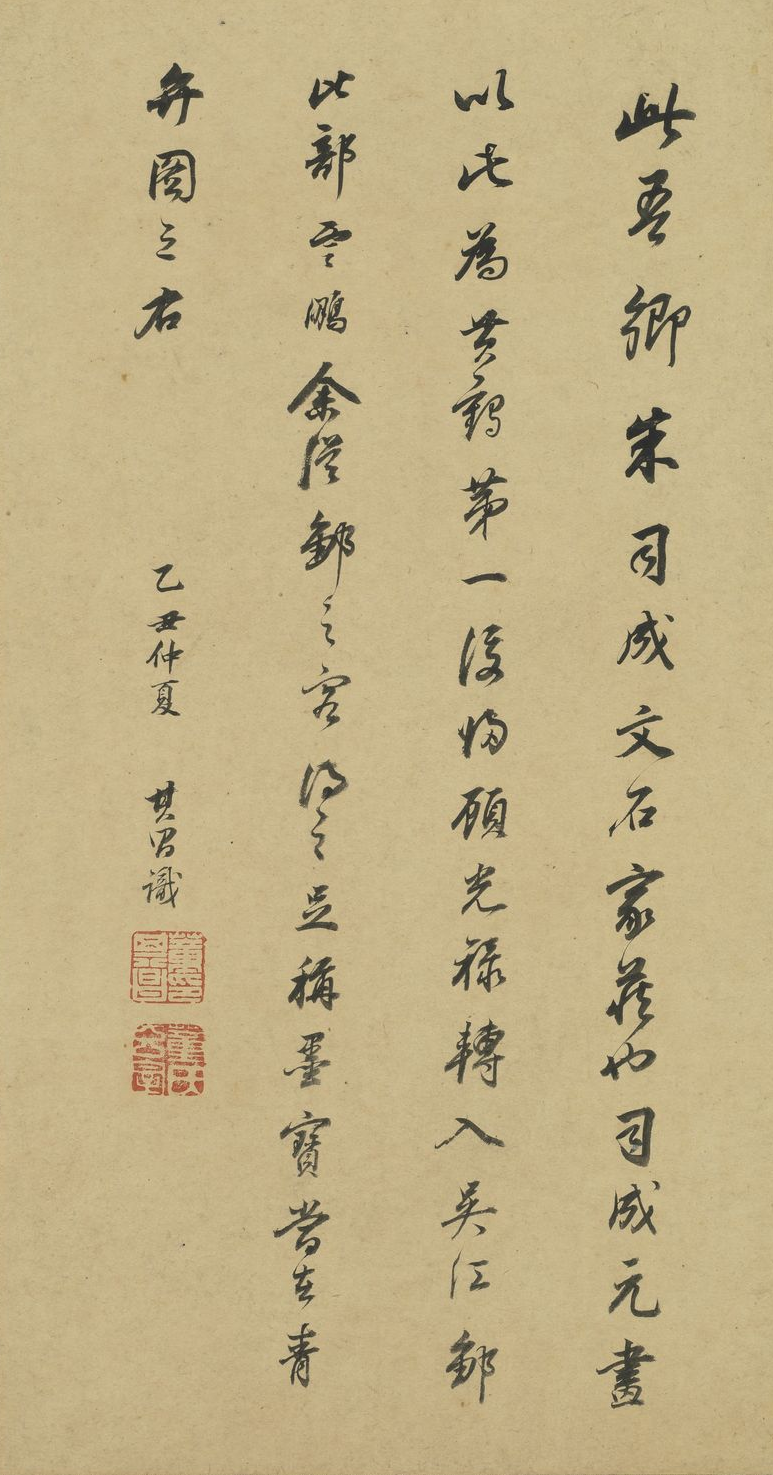 此吾鄉朱司成文石家藏也司成元畫
以此為黃鶴第一後歸顧光祿轉入吳江鄒
比部雲鵬余從鄒之客得之足稱墨寶當在青
弁圖之右 乙丑仲夏 其昌識